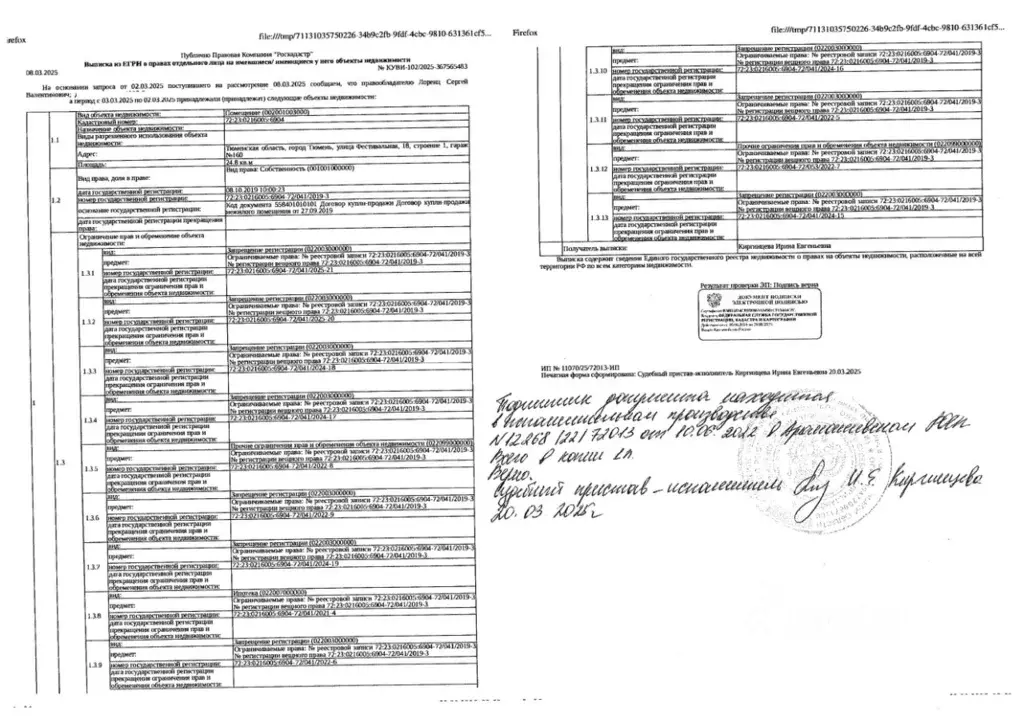 Firefox
file:///tmp/71131035750226-34b9c2fb-9fdf-4cbc-9810-631361cf5...
Публично Правовая Компания "Роскадастр"
Выписка из ЕГРН о правах отдельного лица на имевшиеся/ имеющиеся у него объекты недвижимости
№ КУВИ-102/2025-367565483
08.03.2025
На основании запроса от 02.03.2025 поступившего на рассмотрение 08.03.2025 сообщаем, что правообладателю Лоренц Сергей
Валентинович;
в период с 03.03.2025 по 02.03.2025 принадлежали (принадлежат) следующие объекты недвижимости:
1
1.1
Вид объекта недвижимости: Помещение (002001003000)
Кадастровый номер: 72:23:0216005:6904
Назначение объекта недвижимости:
Виды разрешенного использования объекта
недвижимости:
Адрес: Тюменская область, город Тюмень, улица Фестивальная, 18, строение 1, гараж
№160
Площадь: 24.8 кв.м
1.2
Вид права, доля в праве: Вид права: Собственность (001001000000)
дата государственной регистрации: 08.10.2019 10:00:23
номер государственной регистрации: 72:23:0216005:6904-72/041/2019-3
основание государственной регистрации: Код документа 558401010101 Договор купли-продажи Договор купли-продажи
нежилого помещения от 27.09.2019
дата государственной регистрации прекращения
права:
1.3
Ограничение прав и обременение объекта
недвижимости:
1.3.1
вид: Запрещение регистрации (022003000000)
предмет: Ограничиваемые права: № реестровой записи 72:23:0216005:6904-72/041/2019-3
№ регистрации вещного права 72:23:0216005:6904-72/041/2019-3
номер государственной регистрации: 72:23:0216005:6904-72/041/2025-21
дата государственной регистрации
прекращения ограничения прав и
обременения объекта недвижимости:
1.3.2
вид: Запрещение регистрации (022003000000)
предмет: Ограничиваемые права: № реестровой записи 72:23:0216005:6904-72/041/2019-3
№ регистрации вещного права 72:23:0216005:6904-72/041/2019-3
номер государственной регистрации: 72:23:0216005:6904-72/041/2025-20
дата государственной регистрации
прекращения ограничения прав и
обременения объекта недвижимости:
1.3.3
вид: Запрещение регистрации (022003000000)
предмет: Ограничиваемые права: № реестровой записи 72:23:0216005:6904-72/041/2019-3
№ регистрации вещного права 72:23:0216005:6904-72/041/2019-3
номер государственной регистрации: 72:23:0216005:6904-72/041/2024-18
дата государственной регистрации
прекращения ограничения прав и
обременения объекта недвижимости:
1.3.4
вид: Запрещение регистрации (022003000000)
предмет: Ограничиваемые права: № реестровой записи 72:23:0216005:6904-72/041/2019-3
№ регистрации вещного права 72:23:0216005:6904-72/041/2019-3
номер государственной регистрации: 72:23:0216005:6904-72/041/2024-17
дата государственной регистрации
прекращения ограничения прав и
обременения объекта недвижимости:
1.3.5
вид: Прочие ограничения прав и обременения объекта недвижимости (022099000000)
предмет: Ограничиваемые права: № реестровой записи 72:23:0216005:6904-72/041/2019-3
№ регистрации вещного права 72:23:0216005:6904-72/041/2019-3
номер государственной регистрации: 72:23:0216005:6904-72/041/2022-8
дата государственной регистрации
прекращения ограничения прав и
обременения объекта недвижимости:
1.3.6
вид: Запрещение регистрации (022003000000)
предмет: Ограничиваемые права: № реестровой записи 72:23:0216005:6904-72/041/2019-3
№ регистрации вещного права 72:23:0216005:6904-72/041/2019-3
номер государственной регистрации: 72:23:0216005:6904-72/041/2022-9
дата государственной регистрации
прекращения ограничения прав и
обременения объекта недвижимости:
1.3.7
вид: Запрещение регистрации (022003000000)
предмет: Ограничиваемые права: № реестровой записи 72:23:0216005:6904-72/041/2019-3
№ регистрации вещного права 72:23:0216005:6904-72/041/2019-3
номер государственной регистрации: 72:23:0216005:6904-72/041/2024-19
дата государственной регистрации
прекращения ограничения прав и
обременения объекта недвижимости:
1.3.8
вид: Ипотека (022007000000)
предмет: Ограничиваемые права: № реестровой записи 72:23:0216005:6904-72/041/2019-3
№ регистрации вещного права 72:23:0216005:6904-72/041/2019-3
номер государственной регистрации: 72:23:0216005:6904-72/041/2021-4
дата государственной регистрации
прекращения ограничения прав и
обременения объекта недвижимости:
1.3.9
вид: Запрещение регистрации (022003000000)
предмет: Ограничиваемые права: № реестровой записи 72:23:0216005:6904-72/041/2019-3
№ регистрации вещного права 72:23:0216005:6904-72/041/2019-3
номер государственной регистрации: 72:23:0216005:6904-72/041/2022-6
дата государственной регистрации
прекращения ограничения прав и
обременения объекта недвижимости:
Firefox
file:///tmp/71131035750226-34b9c2fb-9fdf-4cbc-9810-631361cf5...
1.3.10
вид: Запрещение регистрации (022003000000)
предмет: Ограничиваемые права: № реестровой записи 72:23:0216005:6904-72/041/2019-3
№ регистрации вещного права 72:23:0216005:6904-72/041/2019-3
номер государственной регистрации: 72:23:0216005:6904-72/041/2024-16
дата государственной регистрации
прекращения ограничения прав и
обременения объекта недвижимости:
1.3.11
вид: Запрещение регистрации (022003000000)
предмет: Ограничиваемые права: № реестровой записи 72:23:0216005:6904-72/041/2019-3
№ регистрации вещного права 72:23:0216005:6904-72/041/2019-3
номер государственной регистрации: 72:23:0216005:6904-72/041/2022-5
дата государственной регистрации
прекращения ограничения прав и
обременения объекта недвижимости:
1.3.12
вид: Прочие ограничения прав и обременения объекта недвижимости (022099000000)
предмет: Ограничиваемые права: № реестровой записи 72:23:0216005:6904-72/041/2019-3
№ регистрации вещного права 72:23:0216005:6904-72/041/2019-3
номер государственной регистрации: 72:23:0216005:6904-72/053/2022-7
дата государственной регистрации
прекращения ограничения прав и
обременения объекта недвижимости:
1.3.13
вид: Запрещение регистрации (022003000000)
предмет: Ограничиваемые права: № реестровой записи 72:23:0216005:6904-72/041/2019-3
№ регистрации вещного права 72:23:0216005:6904-72/041/2019-3
номер государственной регистрации: 72:23:0216005:6904-72/041/2024-15
дата государственной регистрации
прекращения ограничения прав и
обременения объекта недвижимости:
Получатель выписки: Киргинцева Ирина Евгеньевна
Выписка содержит сведения Единого государственного реестра недвижимости о правах на объекты недвижимости, расположенные на всей
территории РФ по всем категориям недвижимости.
Результат проверки ЭП: Подпись верна
ДОКУМЕНТ ПОДПИСАН
ЭЛЕКТРОННОЙ ПОДПИСЬЮ
ФЕДЕРАЛЬНАЯ СЛУЖБА ГОСУДАРСТВЕННОЙ
РЕГИСТРАЦИИ, КАДАСТРА И КАРТОГРАФИИ
ИП № 11070/25/72013-ИП
Печатная форма сформирована: Судебный пристав-исполнитель Киргинцева Ирина Евгеньевна 20.03.2025
находится
в исполнительном производстве
N 12268/22/72013 от 10.06.2022 в
Всего в копии 2л.
Верно.
Судебный пристав-исполнитель И.Е. Киргинцева
20.03 2025г